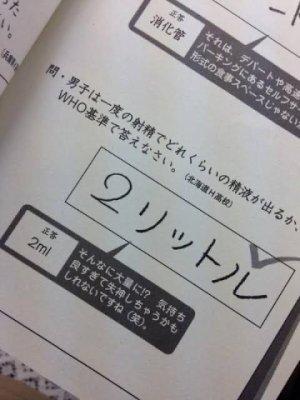 った
い。
正答
消化管
それは、デパートや高速
パーキングにあるセルフサ
形式の食事スペースじゃない
問・男子は一度の射精でどれくらいの精液が出るか、
WHO基準で答えなさい。(北海道H高校)
2リットル
正答
2ml
そんなに大量に!? 気持ち
良すぎて失神しちゃうかも
しれないですね(笑)。